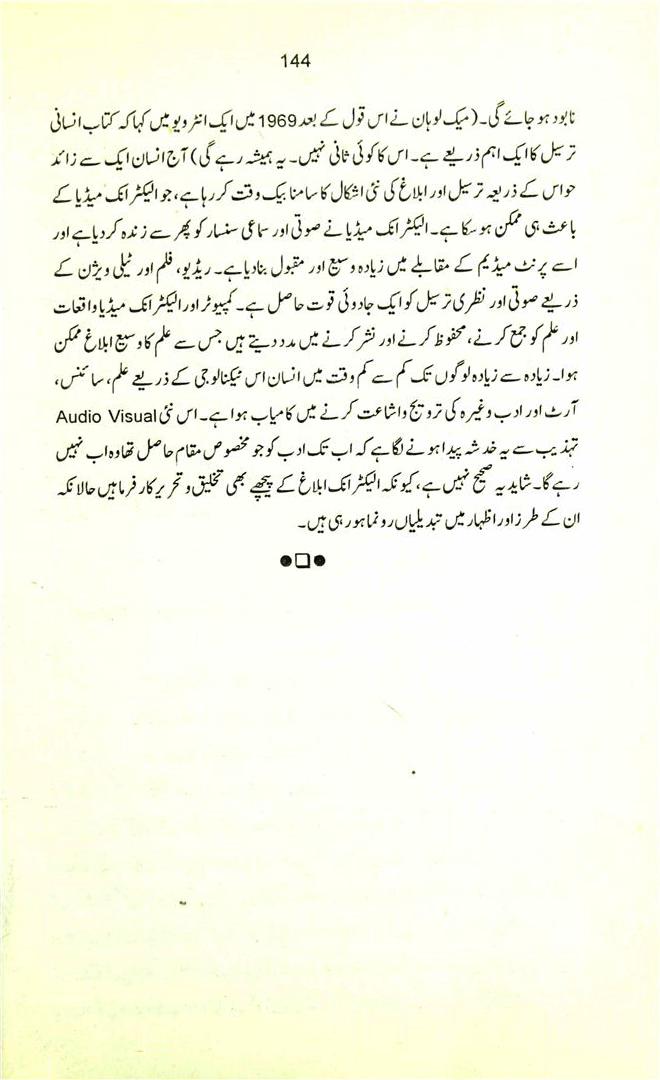 144
نابود ہو جائے گی۔ (میک لوہان نے اس قول کے بعد 1969 میں ایک انٹرویو میں کہا کہ کتاب انسانی
ترسیل کا ایک اہم ذریعے ہے۔ اس کا کوئی ثانی نہیں۔ یہ ہمیشہ رہے گی) آج انسان ایک سے زائد
حواس کے ذریعہ ترسیل اور ابلاغ کی نئی اشکال کا سامنا بیک وقت کر رہا ہے، جو الیکٹرانک میڈیا کے
باعث ہی ممکن ہو سکا ہے۔ الیکٹرانک میڈیا نے صوتی اور سماعی سنسار کو پھر سے زندہ کر دیا ہے اور
اسے پرنٹ میڈیم کے مقابلے میں زیادہ وسیع اور مقبول بنا دیا ہے۔ ریڈیو، فلم اور ٹیلی ویژن کے
ذریعے صوتی اور نظری ترسیل کو ایک جادوئی قوت حاصل ہے۔ کمپیوٹر اور الیکٹرانک میڈیا واقعات
اور علم کو جمع کرنے، محفوظ کرنے اور نشر کرنے میں مدد دیتے ہیں جس سے علم کا وسیع ابلاغ ممکن
ہوا۔ زیادہ سے زیادہ لوگوں تک کم سے کم وقت میں انسان اس ٹیکنالوجی کے ذریعے علم، سائنس،
آرٹ اور ادب وغیرہ کی ترویج و اشاعت کرنے میں کامیاب ہوا ہے۔ اس نئی Audio Visual
تہذیب سے یہ خدشہ پیدا ہونے لگا ہے کہ اب تک ادب کو جو مخصوص مقام حاصل تھا وہ اب نہیں
رہے گا۔ شاید یہ صحیح نہیں ہے، کیونکہ الیکٹرانک ابلاغ کے پیچھے بھی تخلیق و تحریر کار فرما ہیں حالانکہ
ان کے طرز اور اظہار میں تبدیلیاں رونما ہو رہی ہیں۔